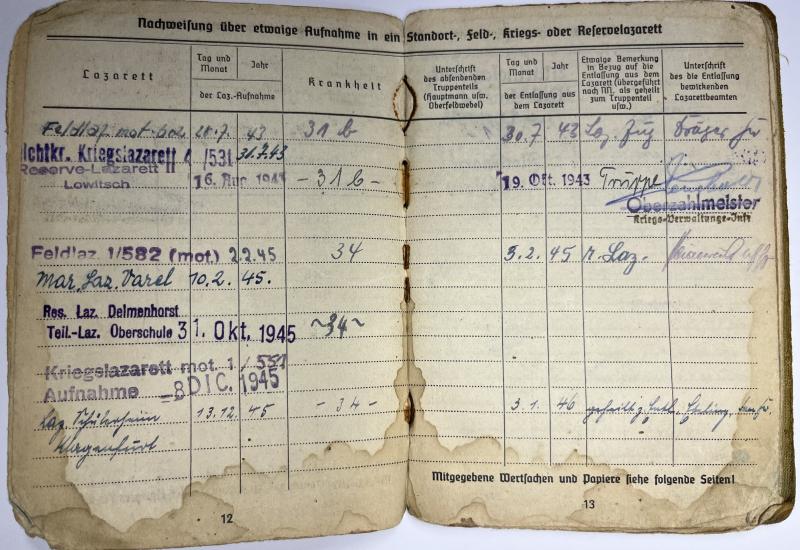 Nachweisung über etwaige Aufnahme in ein Standort-, Feld-, Kriegs- oder Reservelazarett
Lazarett
Tag und Monat
Jahr
der Laz.-Aufnahme
Krankheit
Unterschrift
des absendenden
Truppenteils
(Hauptmann usw.
Oberfeldwebel)
Tag und Monat
Jahr
der Entlassung aus
dem Lazarett
Etwaige Bemerkung
in Bezug auf die
Entlassung aus dem
Lazarett (übergeführt
nach NN, als geheilt
zum Truppenteil
usw.)
Unterschrift
des die Entlassung
bewirkenden
Lazarettbeamten
Feldlaz. mot. 7. 43 31 b 30.7 43 Laz. Zug
lchtkr. Kriegslazarett 4/531 31.7.43
Reserve-Lazarett II
Lowitsch
16. Aug. 1943 -31b- 19. Okt. 1943 Truppe
Oberzahlmeister
Kriegs-Verwaltungs-Insp
Feldlaz. 1/582 (mot.) 2.2.45 34 3.2. 45 Laz.
Mar. Laz. Varel 10.2. 45.
Res. Laz. Delmenhorst
Teil.-Laz. Oberschule 31. Okt. 1945 ~34~
Kriegslazarett mot. 1/551
Aufnahme -8 DIC. 1945
Laz. Schülerheim 13.12. 45 -34- 3.1. 46
Klagenfurt
Mitgegebene Wertsachen und Papiere siehe folgende Seiten!
12
13